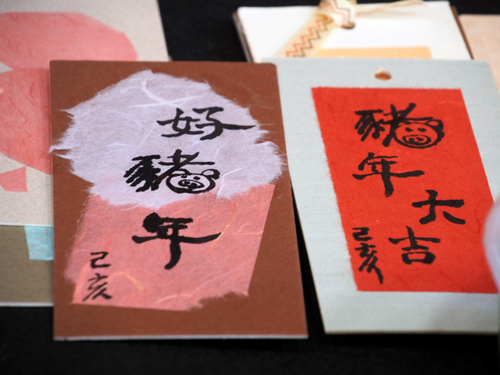 好豬年
己亥
豬年大吉
己亥